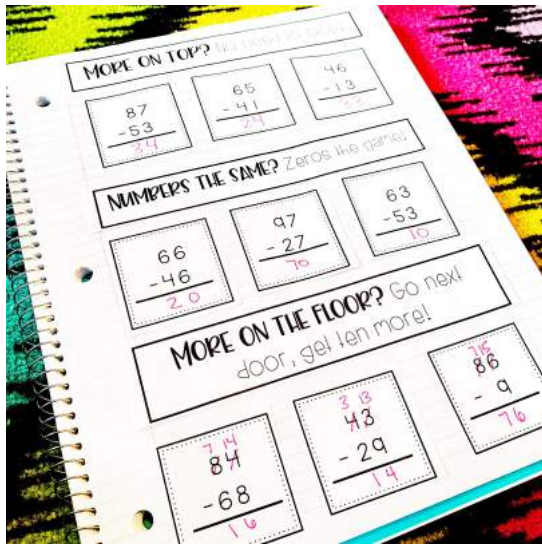 MORE ON TOP? No need to stop!
87
-53
34
65
-41
24
46
-13
33
NUMBERS THE SAME? Zeros the game!
66
-46
20
97
-27
70
63
-53
10
MORE ON THE FLOOR? Go next
door, get ten more!
7 14
84
-68
16
3 13
43
-29
14
7 15
86
- 9
76